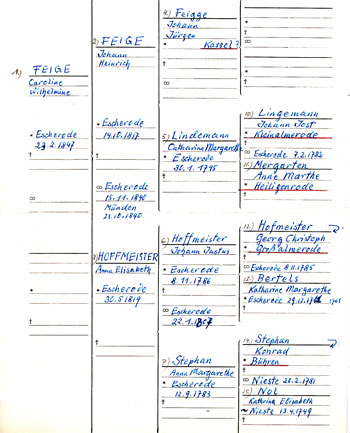 1.) FEIGE
Caroline
Wilhelmine
* Escherode
23.2.1847
†
2.) FEIGE
Johann
Heinrich
* Escherode
14.10.1817
†
∞ Escherode
15.11.1840
Münden
3.) HOFFMEISTER
Anna Elisabeth
* Escherode
30.5.1819
†
4.) Feigge
Johann
Jürgen
* Kassel?
†
∞
5.) Lindemann
Catharina Margarethe
* Escherode
†
6.) Hoffmeister
Johann Justus
* Escherode
8.11.1786
†
∞ Escherode
7.) Stephan
Anna Margarethe
* Escherode
12.9.1783
†
*
†
∞
*
†
10.) Lingemann
Johann Jost
* Kleinalmerode
†
∞ Escherode 7.2.1782
11.) Mergarten
Anne Marthe
* Heiligenrode
†
12.) Hofmeister
Georg Christoph
* Großalmerode
†
∞ Escherode 8.11.1785
13.) Bertels
Katharina Margarethe
* Escherode
†
14.) Stephan
Konrad
* Bühren
†
∞ Nieste 28.2.1781
15.) Nol
Kathrin Elisabeth
~ Nieste 13.4.1749
†